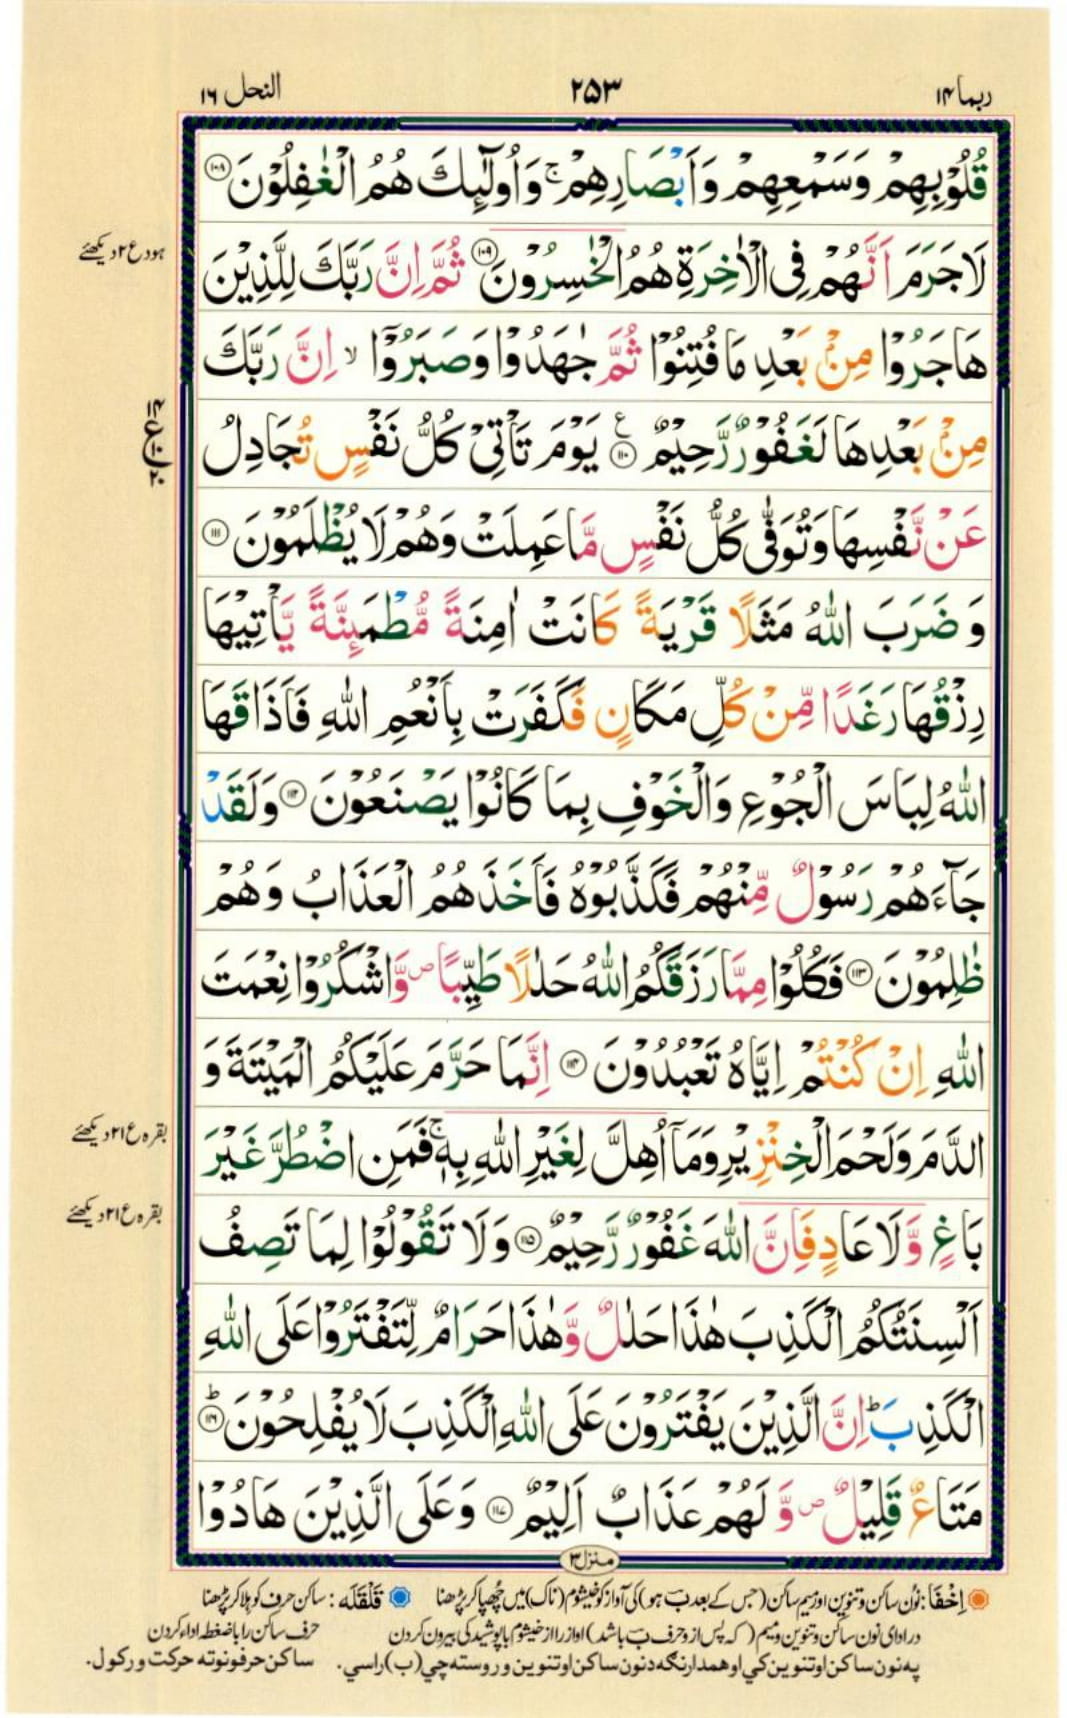 ربما ۱۴
۲۵۳
النحل ۱۶
قُلُوْبِهِمْ وَسَمْعِهِمْ وَاَبْصَارِهِمْ ۚ وَاُولٰٓئِكَ هُمُ الْغٰفِلُوْنَ ۝۱۰۸
لَاجَرَمَ اَنَّهُمْ فِی الْاٰخِرَةِ هُمُ الْخٰسِرُوْنَ ۝۱۰۹ ثُمَّ اِنَّ رَبَّكَ لِلَّذِيْنَ
هود ع ۲ دیکھئے
هَاجَرُوْا مِنْۢ بَعْدِ مَا فُتِنُوْا ثُمَّ جٰهَدُوْا وَصَبَرُوْٓا ۙ اِنَّ رَبَّكَ
مِنْۢ بَعْدِهَا لَغَفُوْرٌ رَّحِيْمٌ ۝۱۱۰ ع يَوْمَ تَاْتِیْ كُلُّ نَفْسٍ تُجَادِلُ
۱۴
ع
۱۰
۲۰
عَنْ نَّفْسِهَا وَتُوَفّٰی كُلُّ نَفْسٍ مَّا عَمِلَتْ وَهُمْ لَا يُظْلَمُوْنَ ۝۱۱۱
وَ ضَرَبَ اللّٰهُ مَثَلًا قَرْيَةً كَانَتْ اٰمِنَةً مُّطْمَئِنَّةً يَّاْتِيْهَا
رِزْقُهَا رَغَدًا مِّنْ كُلِّ مَكَانٍ فَكَفَرَتْ بِاَنْعُمِ اللّٰهِ فَاَذَاقَهَا
اللّٰهُ لِبَاسَ الْجُوْعِ وَالْخَوْفِ بِمَا كَانُوْا يَصْنَعُوْنَ ۝۱۱۲ وَلَقَدْ
جَآءَهُمْ رَسُوْلٌ مِّنْهُمْ فَكَذَّبُوْهُ فَاَخَذَهُمُ الْعَذَابُ وَهُمْ
ظٰلِمُوْنَ ۝۱۱۳ فَكُلُوْا مِمَّا رَزَقَكُمُ اللّٰهُ حَلٰلًا طَيِّبًا ۪ وَّاشْكُرُوْا نِعْمَتَ
اللّٰهِ اِنْ كُنْتُمْ اِيَّاهُ تَعْبُدُوْنَ ۝۱۱۴ اِنَّمَا حَرَّمَ عَلَيْكُمُ الْمَيْتَةَ وَ
الدَّمَ وَلَحْمَ الْخِنْزِيْرِ وَمَآ اُهِلَّ لِغَيْرِ اللّٰهِ بِهٖ ۚ فَمَنِ اضْطُرَّ غَيْرَ
بقره ع ۲۱ دیکھئے
بَاغٍ وَّلَا عَادٍ فَاِنَّ اللّٰهَ غَفُوْرٌ رَّحِيْمٌ ۝۱۱۵ وَلَا تَقُوْلُوْا لِمَا تَصِفُ
بقره ع ۲۱ دیکھئے
اَلْسِنَتُكُمُ الْكَذِبَ هٰذَا حَلٰلٌ وَّهٰذَا حَرَامٌ لِّتَفْتَرُوْا عَلَی اللّٰهِ
الْكَذِبَ ؕ اِنَّ الَّذِيْنَ يَفْتَرُوْنَ عَلَی اللّٰهِ الْكَذِبَ لَا يُفْلِحُوْنَ ۝۱۱۶ ؕ
مَتَاعٌ قَلِيْلٌ ۪ وَّ لَهُمْ عَذَابٌ اَلِيْمٌ ۝۱۱۷ وَعَلَی الَّذِيْنَ هَادُوْا
منزل ۳
اِخْفَا : نون ساکن و تنوین اور میم ساکن (جس کے بعد ب ہو) کی آواز کو خیشوم (ناک) میں چھپا کر پڑھنا
قَلْقَلَه : ساکن حرف کو ہلا کر پڑھنا
در ادای نون ساکن و تنوین و میم (که پس از و حرف ب باشد) اواز را از خیشوم با پوشیدگی بیرون کردن
حرف ساکن را با ضغطه اداء کردن
په نون ساکن او تنوین کي او همدارنگه د نون ساکن او تنوین وروسته چي (ب) راسي.
ساکن حرفو نو ته حرکت ورکول.